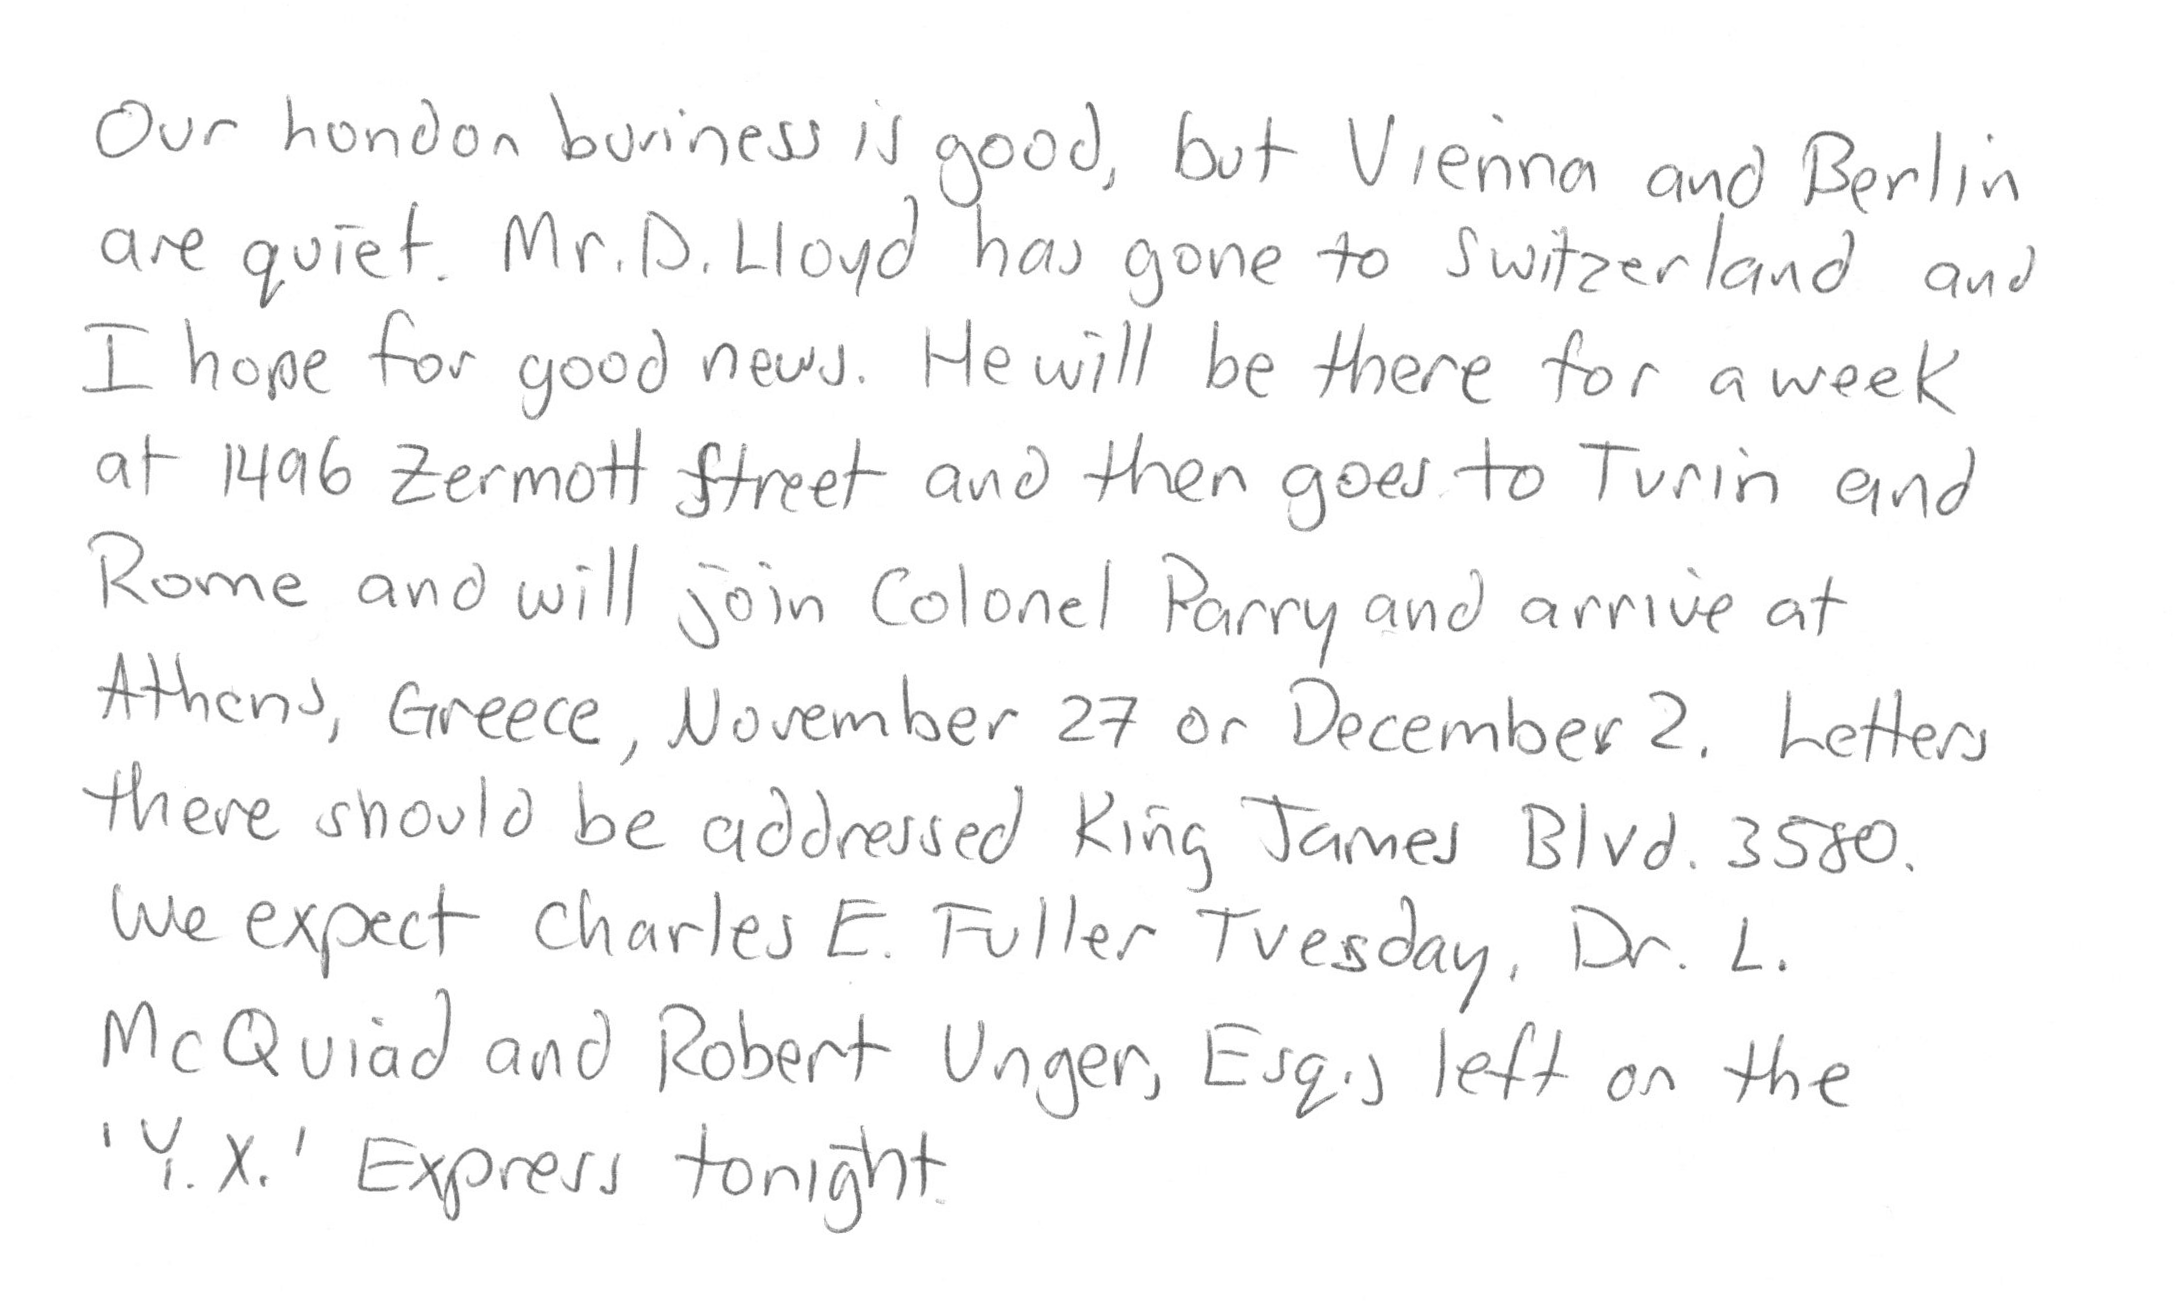 Our London business is good, but Vienna and Berlin
are quiet. Mr. D. Lloyd has gone to Switzerland and
I hope for good news. He will be there for a week
at 1496 Zermott Street and then goes to Turin and
Rome and will join Colonel Parry and arrive at
Athens, Greece, November 27 or December 2. Letters
there should be addressed King James Blvd. 3580.
We expect Charles E. Fuller Tuesday. Dr. L.
McQuiad and Robert Unger, Esq., left on the
'Y.X.' Express tonight.